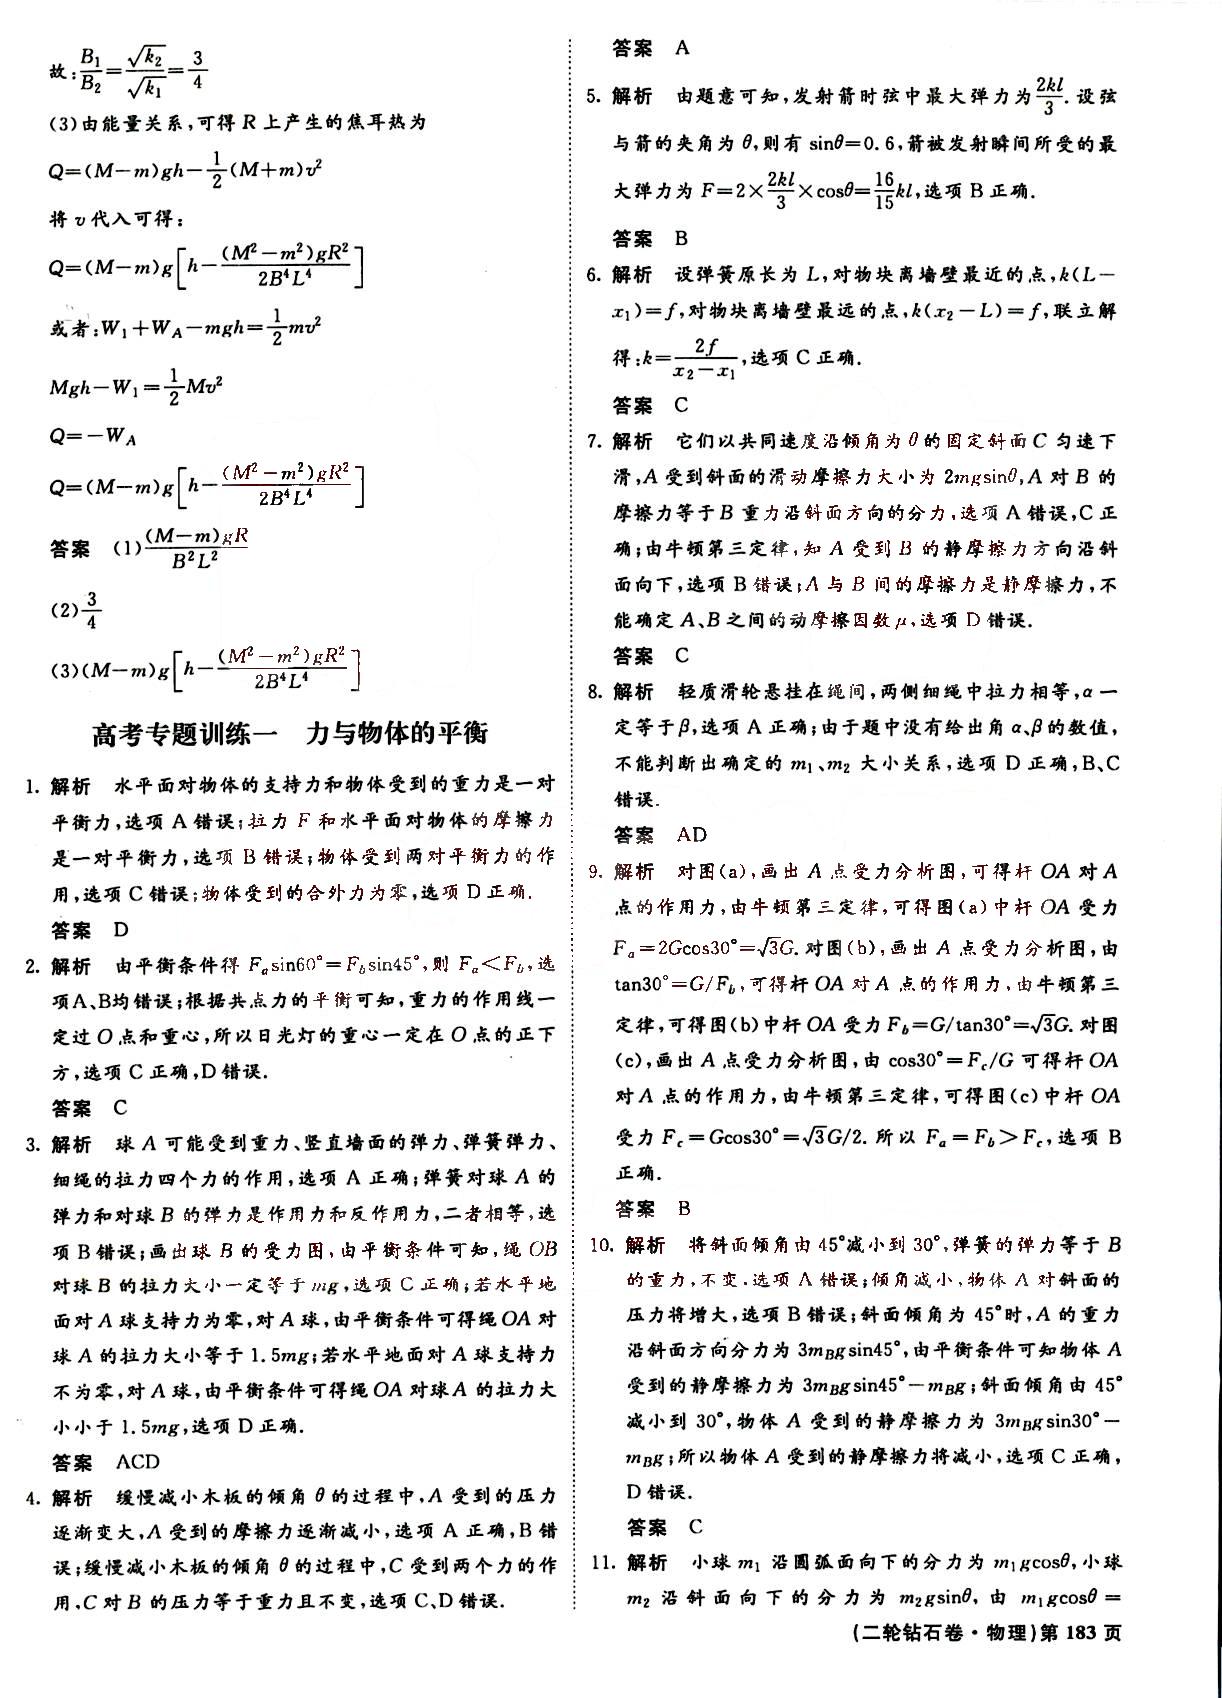 故:B₁/B₂=√k₂/√k₁=3/4
(3)由能量关系,可得R上产生的焦耳热为
Q=(M－m)gh－1/2(M＋m)v²
将v代入可得:
Q=(M－m)g[h－(M²－m²)gR²/2B⁴L⁴]
或者:W₁＋W_A－mgh=1/2mv²
Mgh－W₁=1/2Mv²
Q=－W_A
Q=(M－m)g[h－(M²－m²)gR²/2B⁴L⁴]
答案 (1)(M－m)gR/B²L²
(2)3/4
(3)(M－m)g[h－(M²－m²)gR²/2B⁴L⁴]
高考专题训练一 力与物体的平衡
1. 解析 水平面对物体的支持力和物体受到的重力是一对
平衡力,选项A错误;拉力F和水平面对物体的摩擦力
是一对平衡力,选项B错误;物体受到两对平衡力的作
用,选项C错误;物体受到的合外力为零,选项D正确.
答案 D
2. 解析 由平衡条件得Fₐsin60°=F_bsin45°,则Fₐ<F_b,选
项A、B均错误;根据共点力的平衡可知,重力的作用线一
定过O点和重心,所以日光灯的重心一定在O点的正下
方,选项C正确,D错误.
答案 C
3. 解析 球A可能受到重力、竖直墙面的弹力、弹簧弹力、
细绳的拉力四个力的作用,选项A正确;弹簧对球A的
弹力和对球B的弹力是作用力和反作用力,二者相等,选
项B错误;画出球B的受力图,由平衡条件可知,绳OB
对球B的拉力大小一定等于mg,选项C正确;若水平地
面对A球支持力为零,对A球,由平衡条件可得绳OA对
球A的拉力大小等于1.5mg;若水平地面对A球支持力
不为零,对A球,由平衡条件可得绳OA对球A的拉力大
小小于1.5mg,选项D正确.
答案 ACD
4. 解析 缓慢减小木板的倾角θ的过程中,A受到的压力
逐渐变大,A受到的摩擦力逐渐减小,选项A正确,B错
误;缓慢减小木板的倾角θ的过程中,C受到两个力的作
用,C对B的压力等于重力且不变,选项C、D错误.
答案 A
5. 解析 由题意可知,发射箭时弦中最大弹力为2kl/3.设弦
与箭的夹角为θ,则有sinθ=0.6,箭被发射瞬间所受的最
大弹力为F=2×2kl/3×cosθ=16/15kl,选项B正确.
答案 B
6. 解析 设弹簧原长为L,对物块离墙壁最近的点,k(L－
x₁)=f,对物块离墙壁最远的点,k(x₂－L)=f,联立解
得:k=2f/x₂－x₁,选项C正确.
答案 C
7. 解析 它们以共同速度沿倾角为θ的固定斜面C匀速下
滑,A受到斜面的滑动摩擦力大小为2mgsinθ,A对B的
摩擦力等于B重力沿斜面方向的分力,选项A错误,C正
确;由牛顿第三定律,知A受到B的静摩擦力方向沿斜
面向下,选项B错误;A与B间的摩擦力是静摩擦力,不
能确定A、B之间的动摩擦因数μ,选项D错误.
答案 C
8. 解析 轻质滑轮悬挂在绳间,两侧细绳中拉力相等,α一
定等于β,选项A正确;由于题中没有给出角α、β的数值,
不能判断出确定的m₁、m₂大小关系,选项D正确,B、C
错误.
答案 AD
9. 解析 对图(a),画出A点受力分析图,可得杆OA对A
点的作用力,由牛顿第三定律,可得图(a)中杆OA受力
Fₐ=2Gcos30°=√3G.对图(b),画出A点受力分析图,由
tan30°=G/F_b,可得杆OA对A点的作用力,由牛顿第三
定律,可得图(b)中杆OA受力F_b=G/tan30°=√3G.对图
(c),画出A点受力分析图,由cos30°=F_c/G可得杆OA
对A点的作用力,由牛顿第三定律,可得图(c)中杆OA
受力F_c=Gcos30°=√3G/2.所以Fₐ=F_b>F_c,选项B
正确.
答案 B
10. 解析 将斜面倾角由45°减小到30°,弹簧的弹力等于B
的重力,不变.选项A错误;倾角减小,物体A对斜面的
压力将增大,选项B错误;斜面倾角为45°时,A的重力
沿斜面方向分力为3m_Bgsin45°,由平衡条件可知物体A
受到的静摩擦力为3m_Bgsin45°－m_Bg;斜面倾角由45°
减小到30°,物体A受到的静摩擦力为3m_Bgsin30°－
m_Bg;所以物体A受到的静摩擦力将减小,选项C正确,
D错误.
答案 C
11. 解析 小球m₁沿圆弧面向下的分力为m₁gcosθ,小球
m₂沿斜面向下的分力为m₂gsinθ,由m₁gcosθ=
(二轮钻石卷·物理)第 183 页